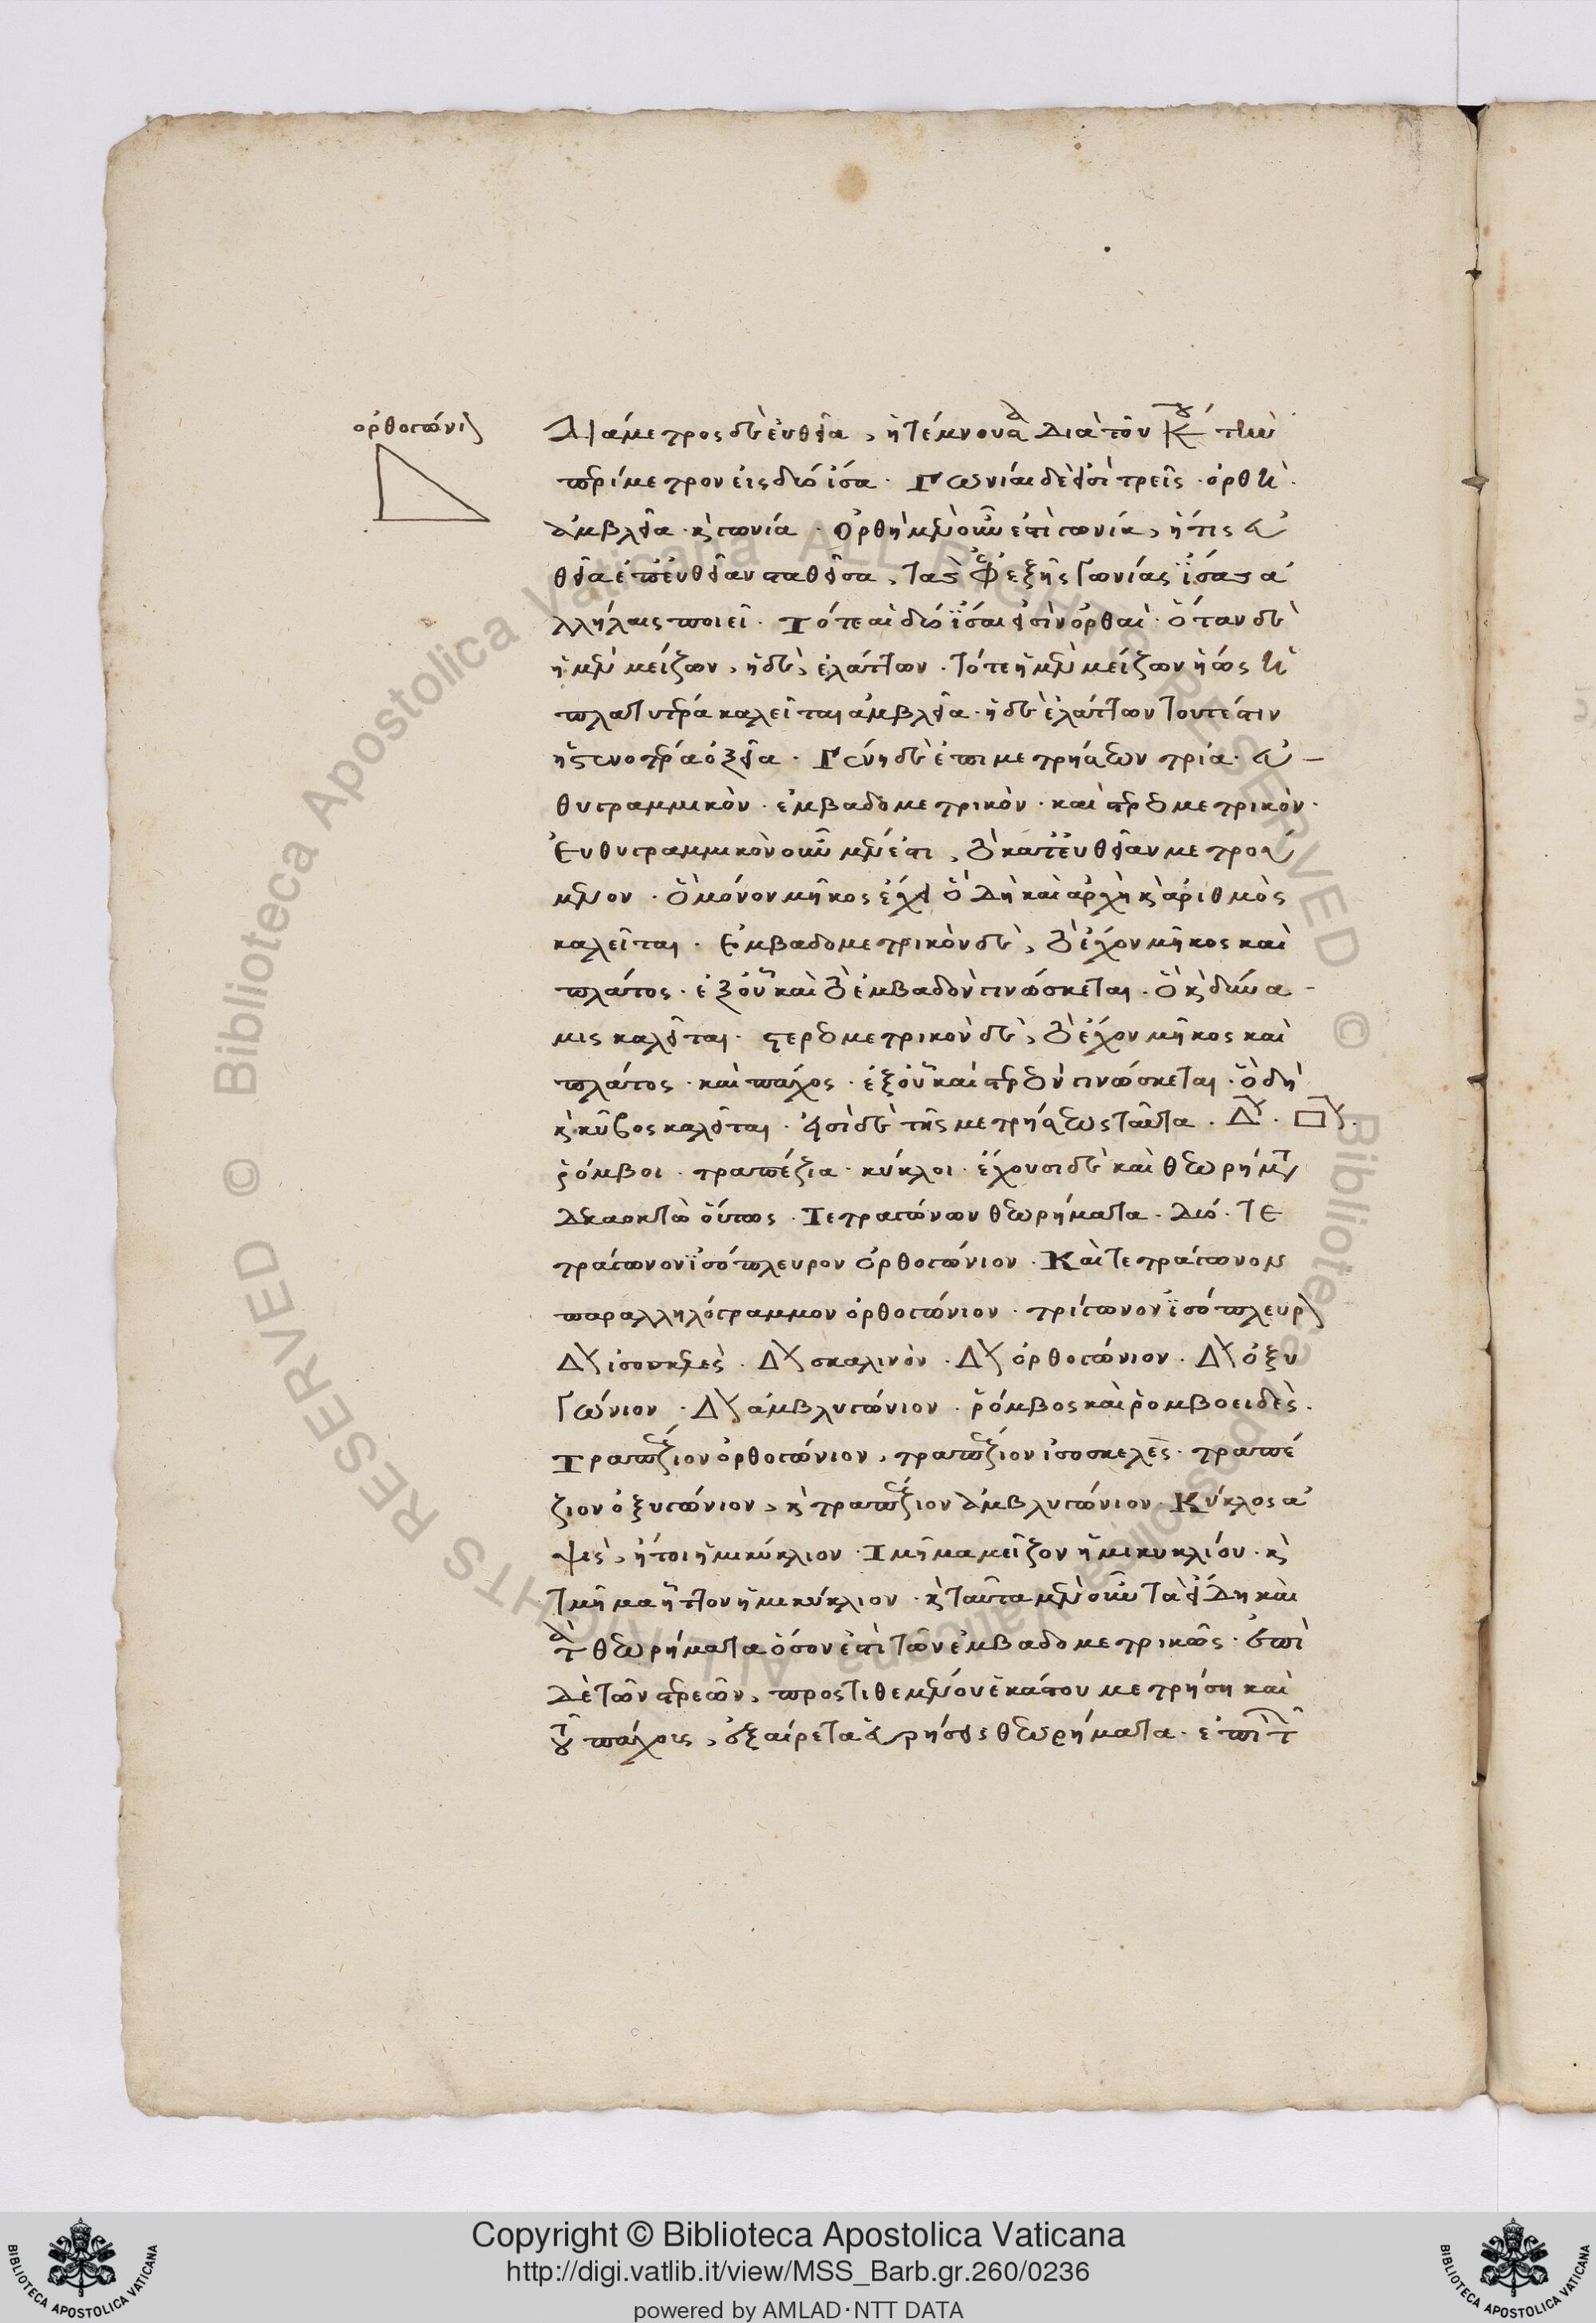 ὀρθογώνιον
Διάμετρος δὲ εὐθεῖα, ἡ τέμνουσα διὰ τοῦ κέντρου τὴν
περίμετρον εἰς δύο ἴσα· Γωνίαι δὲ εἰσὶ τρεῖς· ὀρθὴ·
ἀμβλεῖα· κὶ γωνία· Ὀρθὴ μὲν οὖν ἐστὶ γωνία, ἥτις εὐ
θεῖα ἐπ' εὐθεῖαν σταθεῖσα, τὰς ἐφεξῆς γωνίας ἴσας ἀ
λλήλαις ποιεῖ· Τότε αἱ δύο ἴσαι εἰσὶν ὀρθαὶ· ὅταν δὲ
ἡ μὲν μείζων, ἡ δὲ, ἐλάττων· τότε ἡ μὲν μείζων ἡ ὡς
πλατυτέρα καλεῖται ἀμβλεῖα· ἡ δὲ ἐλάττων τουτέστιν
ἡ στενοτέρα ὀξεῖα· Γένη δὲ ἐστι μετρήσεων τρία· εὐ–
θυγραμμικὸν· ἐμβαδομετρικὸν· καὶ στερεομετρικὸν·
Εὐθυγραμμικὸν οὖν μέν ἐστι, τὸ κατ' εὐθεῖαν μετρού
μενον· ὃ μόνον μῆκος ἔχει ὃ δὴ καὶ ἀρχὴ κὶ ἀριθμὸς
καλεῖται· Ἐμβαδομετρικὸν δὲ, τὸ ἔχον μῆκος καὶ
πλάτος· ἐξ οὗ καὶ τὸ ἐμβαδὸν γινώσκεται· ὃ κὶ δύνα-
μις καλεῖται· στερεομετρικὸν δὲ, τὸ ἔχον μῆκος καὶ
πλάτος· καὶ πάχος· ἐξ οὗ καὶ στερεὸν γινώσκεται· ὃ δὴ
κὶ κύβος καλεῖται· εἰσὶ δὲ τῆς μετρήσεως ταῦτα· Δ· □·
ῥόμβοι· τραπέζια· κύκλοι· ἔχουσι δὲ καὶ θεωρήματα
δεκαοκτὼ οὕτως· Τετραγώνων θεωρήματα· δύο· τε
τράγωνον ἰσόπλευρον ὀρθογώνιον· Καὶ τετράγωνον
παραλληλόγραμμον ὀρθογώνιον· τρίγωνον ἰσόπλευρον
Δ ἰσοσκελὲς· Δ σκαλινὸν· Δ ὀρθογώνιον· Δ ὀξυ
γώνιον· Δ ἀμβλυγώνιον· ῥόμβος καὶ ῥομβοειδὲς·
Τραπέζιον ὀρθογώνιον, τραπέζιον ἰσοσκελὲς· τραπέ
ζιον ὀξυγώνιον, κὶ τραπέζιον ἀμβλυγώνιον· Κύκλος ἀ
ψὶς, ἤτοι ἡμικύκλιον· Τμῆμα μεῖζον ἡμικυκλίου· κὶ
τμῆμα ἧττον ἡμικύκλιον· κὶ ταῦτα μὲν οὖν τὰ εἴδη καὶ
τὰ θεωρήματα ὅσον ἐπὶ τῶν ἐμβαδομετρικῶς· ἐπὶ
δὲ τῶν στερεῶν, προστιθεμένου ἑκάστου μετρήση καὶ
τοῦ πάχους, ἐξαίρετα εὑρήσεις θεωρήματα· ἐπὶ τ
Copyright © Biblioteca Apostolica Vaticana
http://digi.vatlib.it/view/MSS_Barb.gr.260/0236
powered by AMLAD·NTT DATA